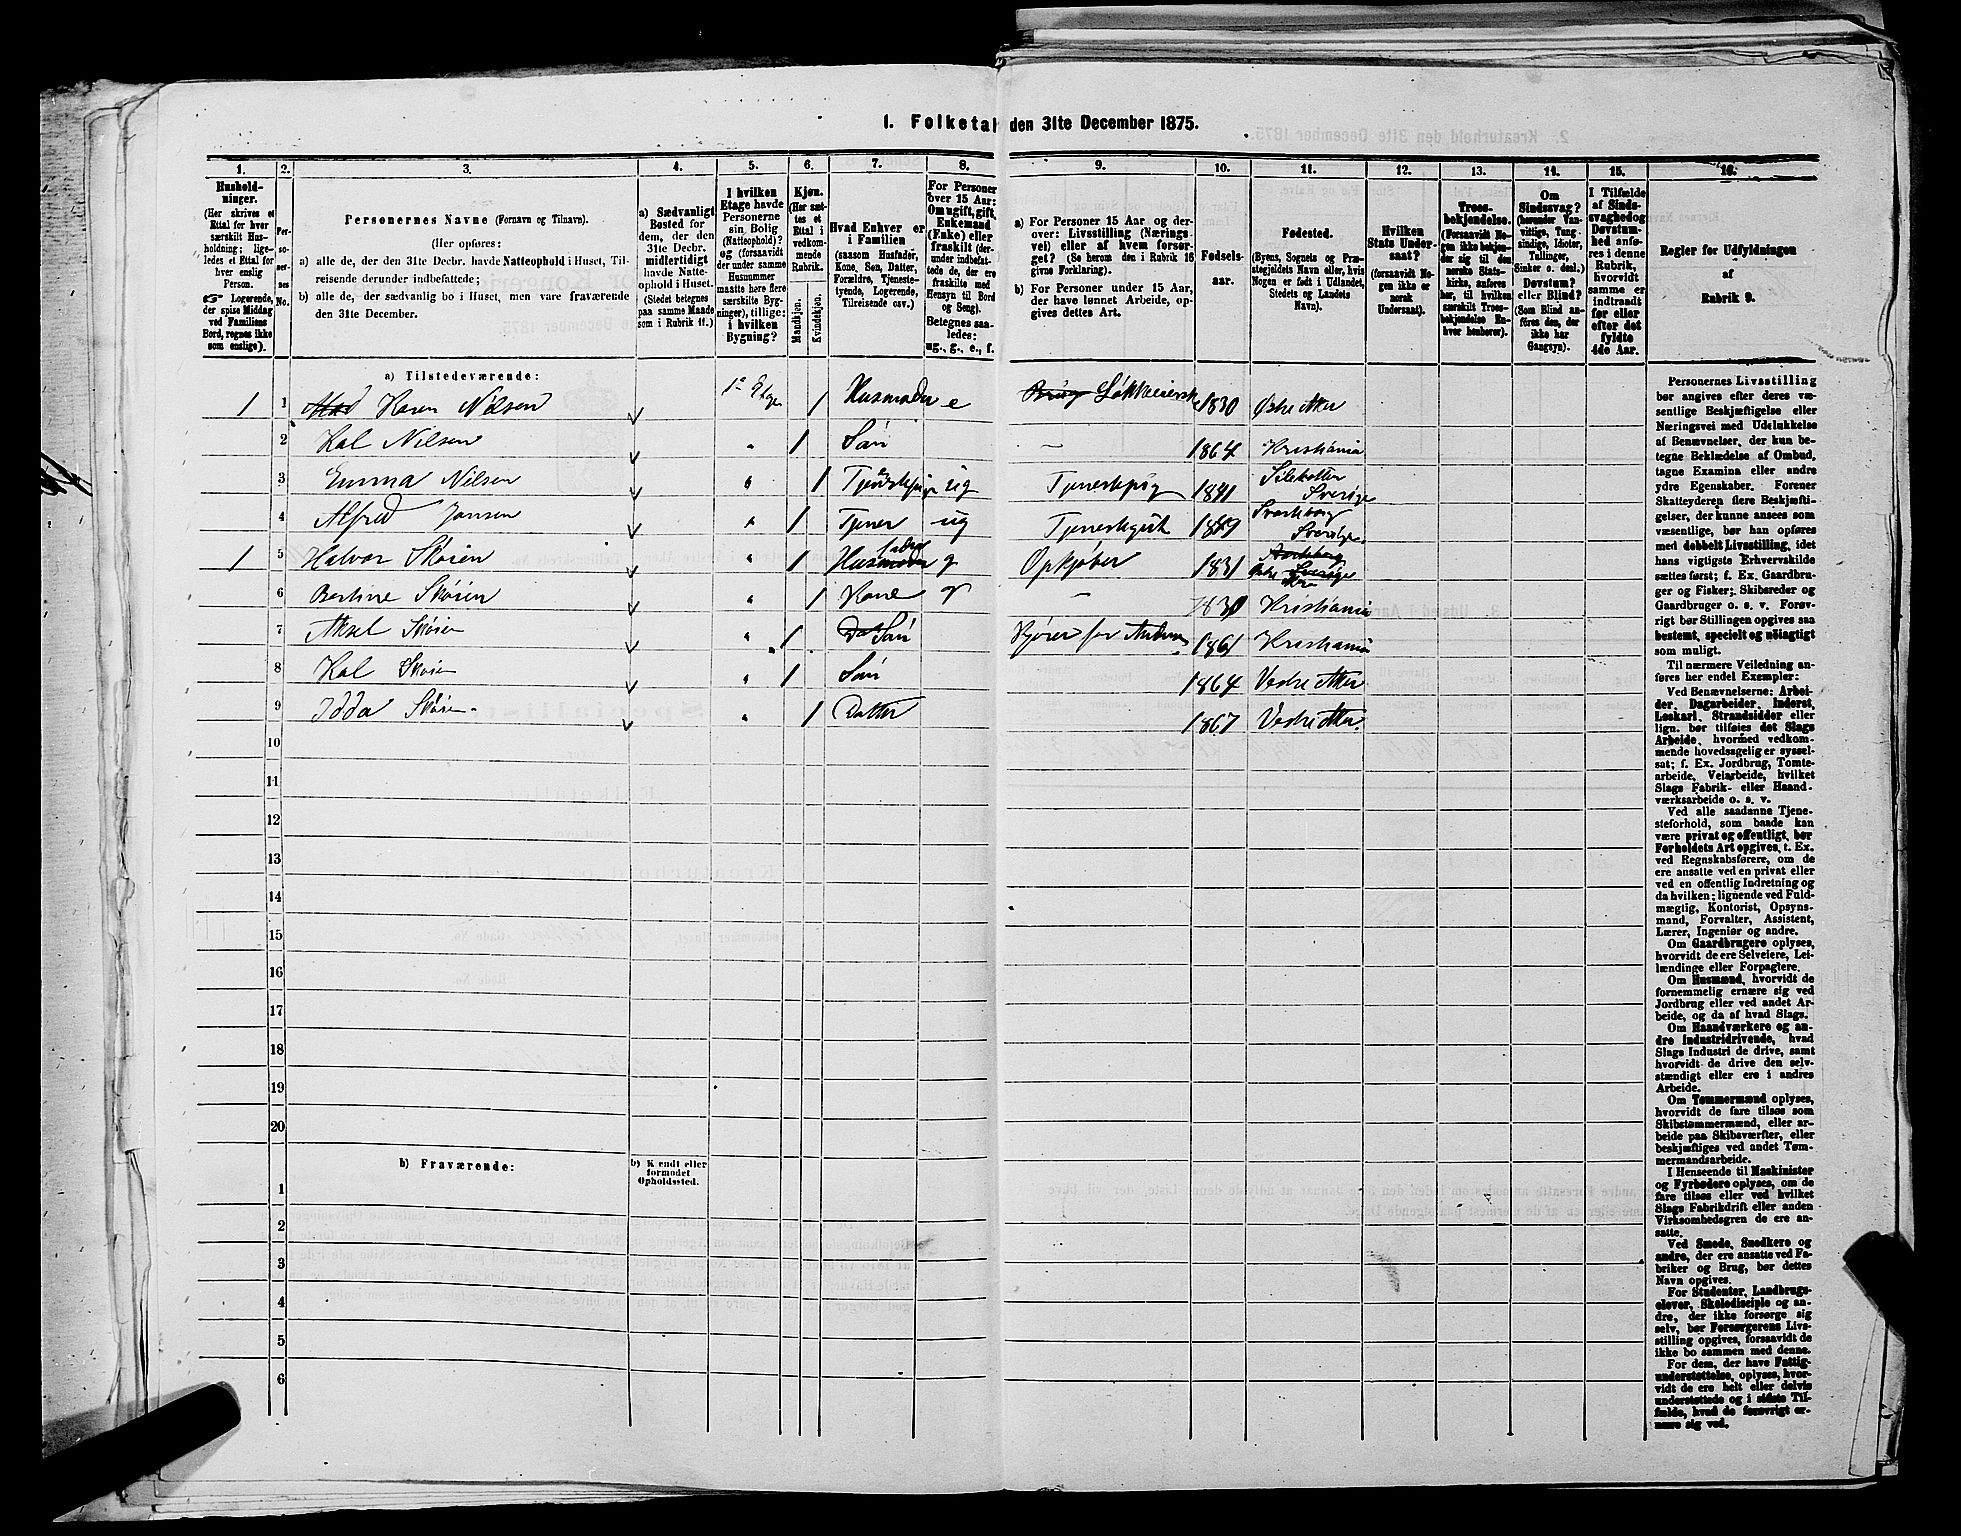 1. Folketal den 31te December 1875.
1. 2. 3. 4. 5. 6. 7. 8. 9. 10. 11. 12. 13. 14. 15. 16.
Hushold-
ninger.
(Her skrives et
Ettal for hver
særskilt Hus-
holdning; lige-
ledes et Ettal for
hver enslig
Person.
☞ Logerende,
der spise Middag
ved Familiens
Bord, regnes ikke
som enslige).
Per-
so-
ner-
nes
No.
Personernes Navne (Fornavn og Tilnavn).
(Her opføres:
a) alle de, der den 31te Decbr. havde Natteophold i Huset, Til-
reisende derunder indbefattede;
b) alle de, der sædvanlig bo i Huset, men vare fraværende
den 31te December.
a) Sædvanligt
Bosted for
dem, der den
31te Decbr.
midlertidigt
havde Natte-
ophold i Huset.
(Stedet betegnes
paa samme Maade
som i Rubrik 11.)
I hvilken
Etage havde
Personerne
sin Bolig
(Natteophold)?
og (forsaavidt
der under samme
Husnummer
maatte høre flere
særskilte Byg-
ninger), tillige:
i hvilken
Bygning?
Kjøn.
(Her sæt-
tes et
Ettal i
vedkom-
mende
Rubrik.
Mandkjøn.
Kvindekjøn.
Hvad Enhver er
i Familien
(saasom Husfader,
Kone, Søn, Datter,
Forældre, Tjeneste-
tyende, Logerende,
Tilreisende osv.)
For Personer
over 15 Aar:
Om ugift, gift,
Enkemand
(Enke) eller
fraskilt (der-
under indbefat-
tede de, der ere
fraskilte med
Hensyn til Bord
og Seng).
Betegnes saa-
ledes:
ug., g., e., f.
a) For Personer 15 Aar og der-
over: Livsstilling (Nærings-
vei) eller af hvem forsør-
get? (Se herom den i Rubrik 16
givne Forklaring).
b) For Personer under 15 Aar,
der have lønnet Arbeide, op-
gives dettes Art.
Fødsels-
aar.
Fødested.
(Byens, Sognets og Præ-
stegjeldets Navn eller, hvis
Nogen er født i Udlandet,
Stedets og Landets
Navn).
Hvilken
Stats Under-
saat?
(forsaavidt No-
gen ikke er
norsk
Undersaat).
Troes-
bekjendelse.
(Forsaavidt No-
gen ikke bekjen-
der sig til den
norske Stats-
kirke, anføres
her, til hvilken
særskilt Troes-
bekjendelse En-
hver henhører).
Om
Sindssvag?
(herunder Van-
vittige, Tung-
sindige, Idioter,
Tullinger,
Sinker o. desl.)
Døvstum?
eller Blind?
(Som Blind an-
føres den, der
ikke har
Gangsyn).
I Tilfælde
af Sinds-
svaghed og
Døvstum-
hed anfø-
res i denne
Rubrik,
hvorvidt
samme er
indtraadt
før eller
efter det
fyldte
4de Aar.
Regler for Udfyldningen
af
Rubrik 9.
a) Tilstedeværende:
1 1 Karen Nilsen 1ste Etage 1 Husmoder e 1830 Østre Aker
2 Kal Nilsen " 1 Søn – 1864 Kristiania
3 Emma Nilsen " 1 Tjenestepige ug Tjenestepig 1841 Sverige
4 Alfred Jansen " 1 Tjener ug Tjenestegut 1849 Sverige
1 5 Halvor Skøien " 1 Husfader g Opkjøber 1831
6 Bertine Skøien " 1 Kone g – 1830 Kristiania
7 Aksel Skøien " 1 Søn Kjører for 1861 Kristiania
8 Kal Skøien " 1 Søn 1864 Vestre Aker
9 Idda Skøien " 1 Datter 1867 Vestre Aker.
10
11
12
13
14
15
16
17
18
19
20
b) Fraværende: b) Kjendt eller
formodet
Opholdssted.
1
2
3
4
5
6
Personernes Livsstilling
bør angives efter deres væ-
sentlige Beskjæftigelse eller
Næringsvei med Udelukkelse
af Benævnelser, der kun be-
tegne Beklædelse af Ombud,
tagne Examina eller andre
ydre Egenskaber. Forener
Skatteyderen flere Beskjæfti-
gelser, der kunne ansees som
væsentlige, bør han opføres
med dobbelt Livsstilling, idet
hans vigtigste Erhvervskilde
sættes først; f. Ex. Gaardbru-
ger og Fisker; Skibsreder og
Gaardbruger o. s. v. Forøv-
rigt bør Stillingen opgives saa
bestemt, specielt og nøiagtigt
som muligt.
Til nærmere Veiledning an-
føres her endel Exempler:
Ved Benævnelserne: Arbei-
der, Dagarbeider, Inderst,
Løskarl, Strandsidder eller
lign. bør tilføies det Slags
Arbeide, hvormed vedkom-
mende hovedsagelig er syssel-
sat; f. Ex. Jordbrug, Tomte-
arbeide, Veiarbeide, hvilket
Slags Fabrik- eller Haand-
værksarbeide o. s. v.
Ved alle saadanne Tjene-
steforhold, som baade kan
være privat og offentligt, bør
Forholdets Art opgives, t. Ex.
ved Regnskabsførere, om de
ere ansatte ved en privat eller
ved en offentlig Indretning og
da hvilken; lignende ved Fuld-
mægtig, Kontorist, Opsyns-
mand, Forvalter, Assistent,
Lærer, Ingeniør og andre.
Om Gaardbrugere oplyses,
hvorvidt de ere Selveiere, Lei-
lændinge eller Forpagtere.
Om Husmænd, hvorvidt de
fornemmelig ernære sig ved
Jordbrug eller ved andet Ar-
beide, og da af hvad Slags.
Om Haandværkere og an-
dre Industridrivende, hvad
Slags Industri de drive, samt
hvorvidt de drive den selv-
stændigt eller ere i andres
Arbeide.
Om Tømmermænd oplyses,
hvorvidt de fare tilsøs som
Skibstømmermænd, eller ar-
beide paa Skibsværfter, eller
beskjæftiges ved andet Tøm-
mermandsarbeide.
I Henseende til Maskinister
og Fyrbødere oplyses, om de
fare tilsøs eller ved hvilket
Slags Fabrikdrift eller anden
Virksomhedsgren de ere an-
satte.
Ved Smede, Snedkere og
andre, der ere ansatte ved Fa-
briker og Brug, bør dettes
Navn opgives.
For Studenter, Landbrugs-
elever, Skoledisciple og an-
dre, der ikke forsørge sig
selv, bør Forsørgerens Livs-
stilling opgives, forsaavidt de
ikke bo sammen med denne.
For dem, der have Fattig-
understøttelse, oplyses, hvor-
vidt de ere helt eller delvis
understøttede og i sidste Til-
fælde, hvad de forøvrigt er-
nære sig ved.